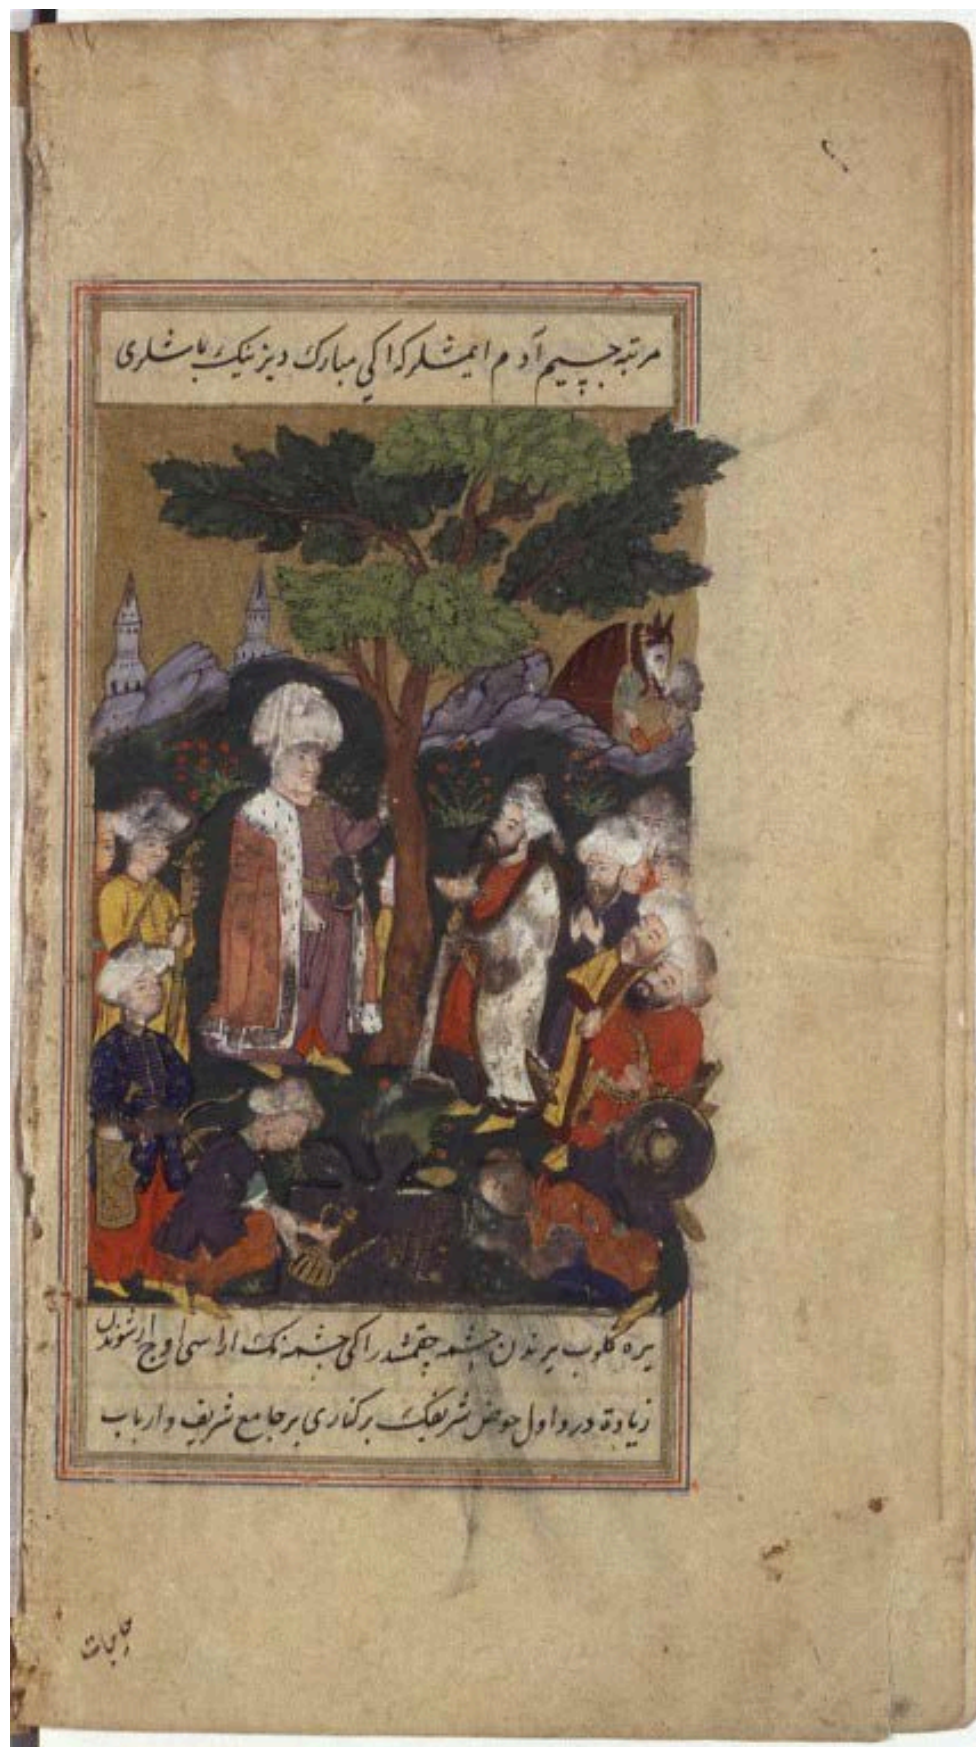 مرتبه جسیم آدم ایمشلر که ایکی مبارك دیزینیك باشلری
یره کلوب یرندن چشمه چقمشدر ایکی چشمه نك اراسی اوچ ارشوندن
زیاده در و اول حوض شریفك بر کناری بر جامع شریف و ارباب
حاجات